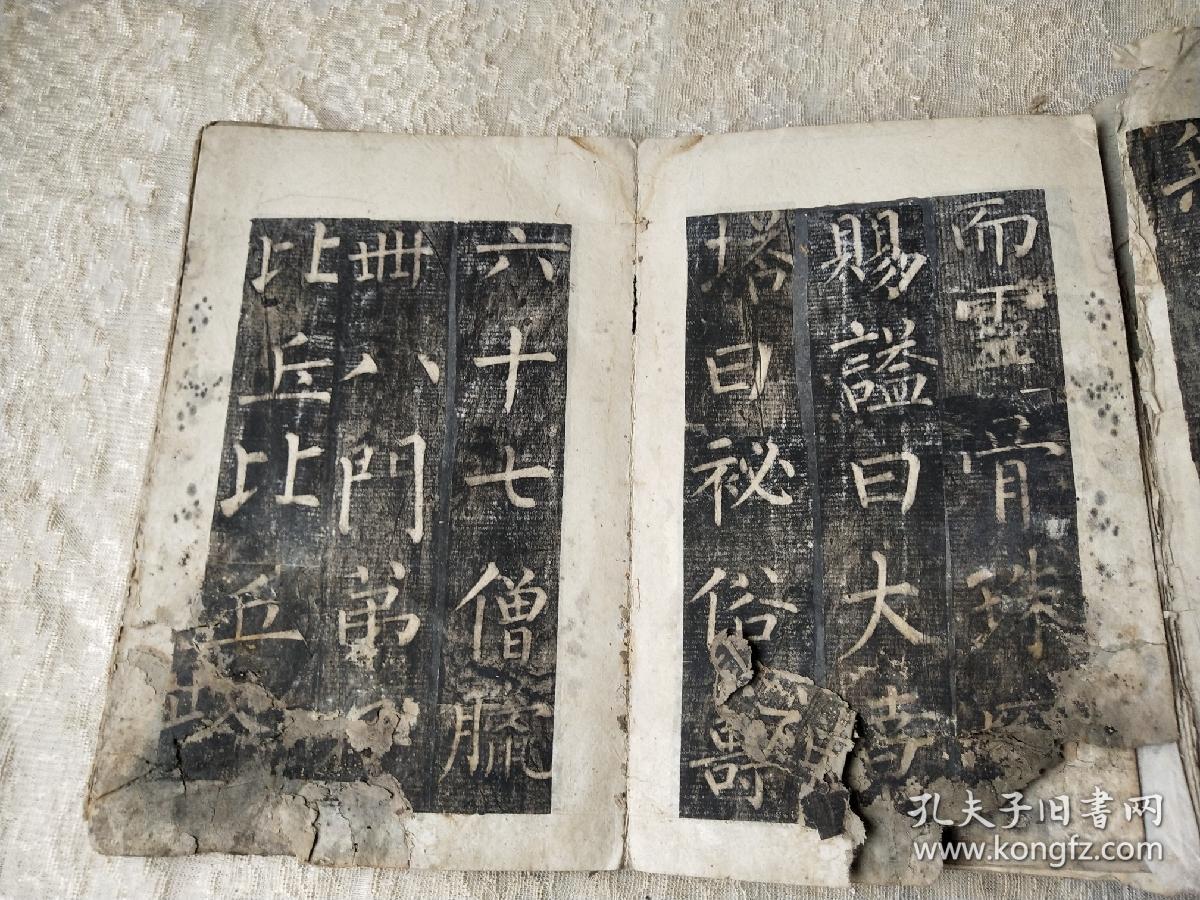 而靈骨珠
賜謚曰大達
塔曰祕俗壽
六十七僧臘
卌八門弟
比丘比丘
孔夫子旧书网
www.kongfz.com